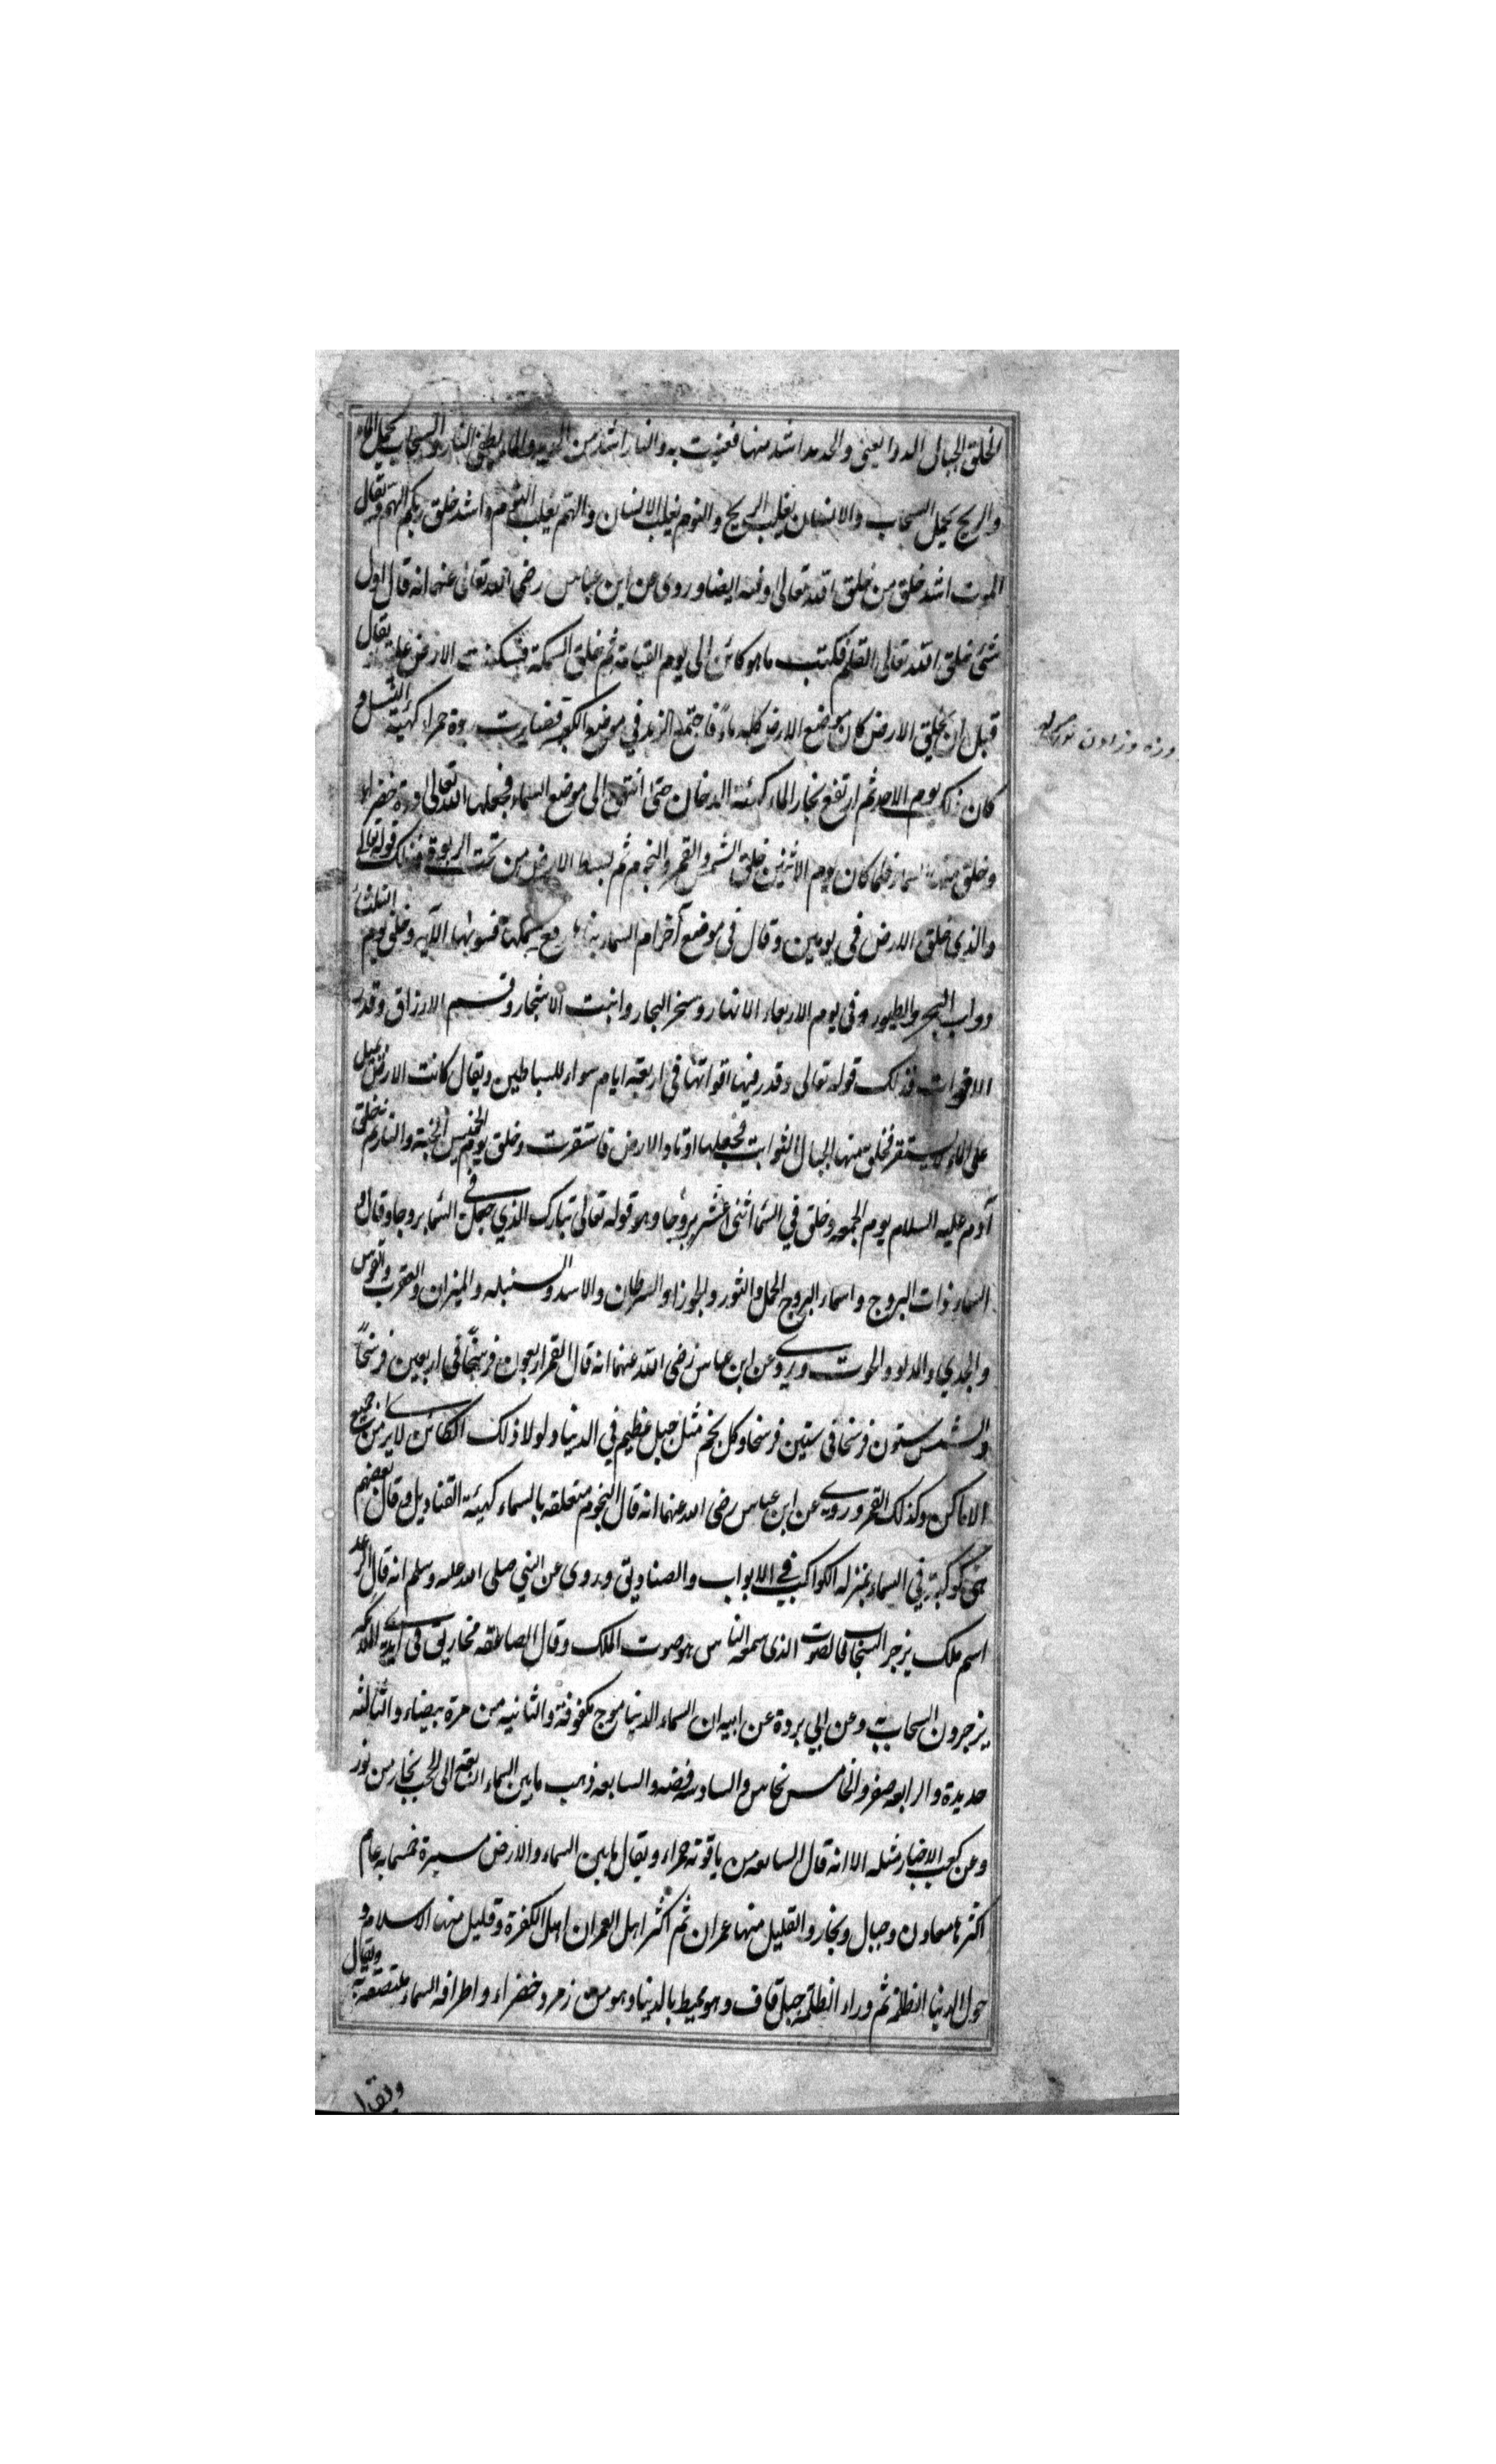 الخلق الجبال الروا يعني والحديد اشد منها فغنيت به والنار اشد من الحديد والماء يطفئ النار والسحاب يحمل الماء
والريح يحمل السحاب والانسان يغلب الريح والنوم يغلب الانسان والهم يغلب النوم واشد خلق ربكم الهم ويقال
الموت اشد خلق من خلق الله تعالى وفيه ايضا وروى عن ابن عباس رضى الله تعالى عنهما انه قال اول
شئ خلق الله تعالى القلم فكتب ما هو كائن الى يوم القيامة ثم خلق السمكة فسكنت الارض عليه يقال
قبل ان يخلق الارض كان موضع الارض كله ماء فاجتمع الزبد في موضع الكعبة فصارت ربوة حمراء كهيئة التل و
كان ذلك يوم الاحد ثم ارتفع بخار الماء كهيئة الدخان حتى انتهى الى موضع السماء فجعلها الله تعالى درة خضراء
وخلق منها السماء فلما كان يوم الاثنين خلق الشمس والقمر والنجوم ثم بسط الارض من تحت الربوة فذلك قوله تعالى
والذي خلق الارض في يومين وقال في موضع آخر ام السماء بناها رفع سمكها فسوىها الآية وخلق يوم الثلثا
دواب البحر والطيور وفي يوم الاربعاء الانهار وسخر البحار وانبت الاشجار وقسم الارزاق وقدر
الاقوات فذلك قوله تعالى وقدر فيها اقواتها في اربعة ايام سواء للسائلين ويقال كانت الارض تميل
على الماء لا يستقر فخلق منها الجبال الثوابت فجعلها اوتاد الارض فاستقرت وخلق يوم الخميس الجنة والنار ثم خلق
آدم عليه السلام يوم الجمعه وخلق في السما اثنى عشر بروجا وهو قوله تعالى تبارك الذي جعل في السما بروجا وقال و
السماء ذات البروج واسماء البروج الحمل والثور والجوزا والسرطان والاسد والسنبله والميزان والعقرب والقوس
والجدي والدلو والحوت وروي عن ابن عباس رضى الله عنهما انه قال القمر اربعون فرسخا في اربعين فرسخا
والشمس ستون فرسخا في ستين فرسخا وكل نجم مثل جبل عظيم في الدنيا ولولا ذلك الكائن لا يرى من جميع
الاماكن وكذلك القمر وروي عن ابن عباس رضى الله عنهما انه قال النجوم متعلقه بالسماء كهيئة القناديل وقال بعضهم
هي كوكبة في السماء بمنزله الكواكب في الابواب والصناديق وروى عن النبي صلى الله عليه وسلم انه قال الرعد
اسم ملك يزجر السحاب فالصوت الذى سمعه الناس هو صوت الملك وقال الصاعقه مخاريق في ايدي الملائكه
يزجرون السحاب به وعن ابي بردة عن ابيه ان السماء الدنيا موج مكفوفة والثانيه من مرة بيضاء والثالثه
حديدة والرابعه صفر والخامس نحاس والسادسه فضه والسابعه ذهب ما بين السماء السابعة الى الحجب بحار من نور
وعن كعب الاخبار مثله الا انه قال السابعه من ياقوته حمراء ويقال ما بين السماء والارض مسيرة خمسمايه عام
اكثرها معادن وجبال وبحار والقليل منها عمران ثم اكثر اهل العمران اهل الكفرة وقليل منها الاسلام و
حول الدنيا الظلمة ثم وراء الظلمة جبل قاف وهو محيط بالدنيا وهو من زمرد خضراء واطرافه السماء ملتصقة به ويقال
ويقا